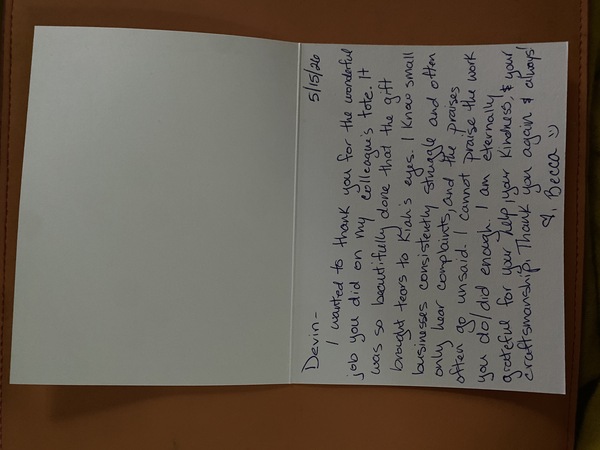 5/15/26
Devin-
I wanted to thank you for the wonderful
job you did on my colleague's tote. It
was so beautifully done that the gift
brought tears to Kiah's eyes. I know small
businesses consistently struggle and often
only hear complaints, and the praises
often go unsaid. I cannot praise the work
you do/did enough. I am eternally
grateful for your help, your kindness, & your
craftsmanship. Thank you again & always!
Becca :)